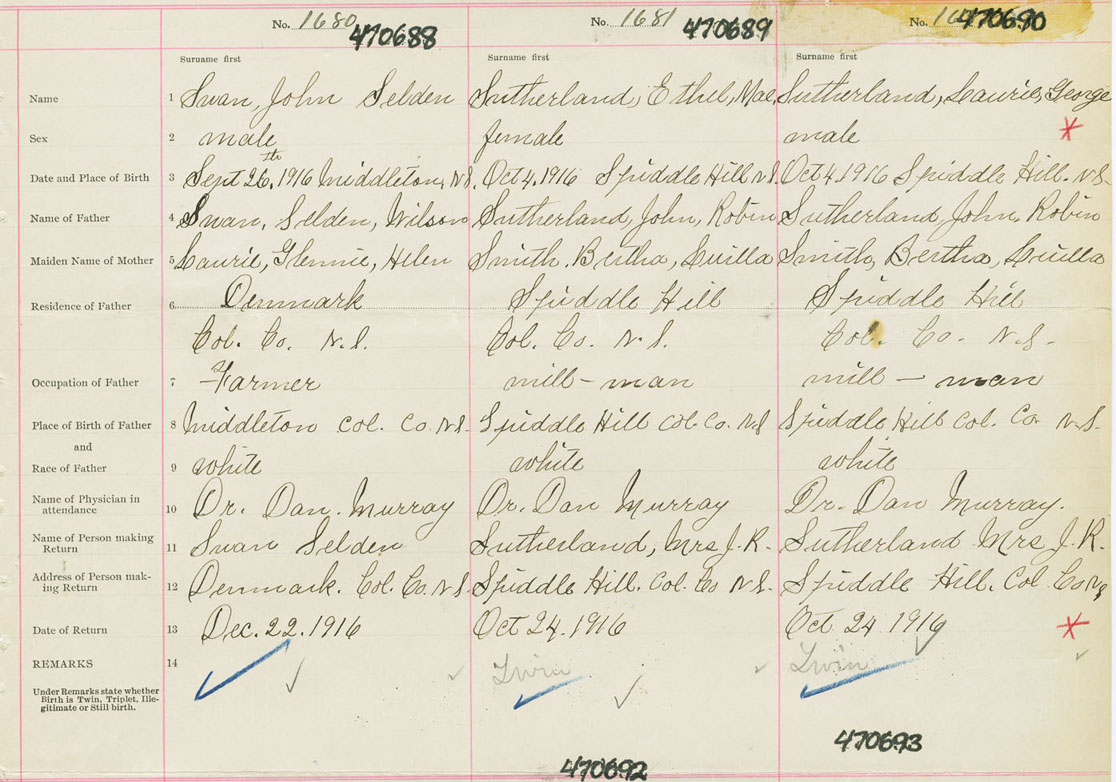 No. 1680 470688 No. 1681 470689 No. 470690
Surname first Surname first Surname first
Name 1 Swan, John Selden Sutherland, Ethel, Mae. Sutherland, Laurie, George
Sex 2 male female male
Date and Place of Birth 3 Sept 26th, 1916 Middleton, N.S. Oct 4, 1916 Spiddle Hill N.S. Oct 4 1916 Spiddle Hill. N.S.
Name of Father 4 Swan, Selden, Wilson Sutherland, John, Robin Sutherland, John, Robin
Maiden Name of Mother 5 Laurie, Glennie, Helen Smith. Bertha, Luilla Smith, Bertha, Luilla
Residence of Father 6 Denmark Spiddle Hill Spiddle Hill
Col. Co. N.S. Col. Co. N.S. Col. Co. N.S.
Occupation of Father 7 Farmer mill-man mill-man
Place of Birth of Father 8 Middleton Col. Co. N.S. Spiddle Hill Col. Co. N.S Spiddle Hill Col. Co. N.S.
and
Race of Father 9 white white white
Name of Physician in
attendance 10 Dr. Dan. Murray Dr. Dan Murray Dr. Dan Murray.
Name of Person making
Return 11 Swan Selden Sutherland, Mrs J. R. Sutherland Mrs J. R.
Address of Person mak-
ing Return 12 Denmark. Col. Co. N.S. Spiddle Hill. Col. Co N.S. Spiddle Hill. Col. Co N.S
Date of Return 13 Dec. 22. 1916 Oct 24. 1916 Oct 24 1916
REMARKS 14 Twin Twin
Under Remarks state whether
Birth is Twin, Triplet, Ille-
gitimate or Still birth.
470692 470693